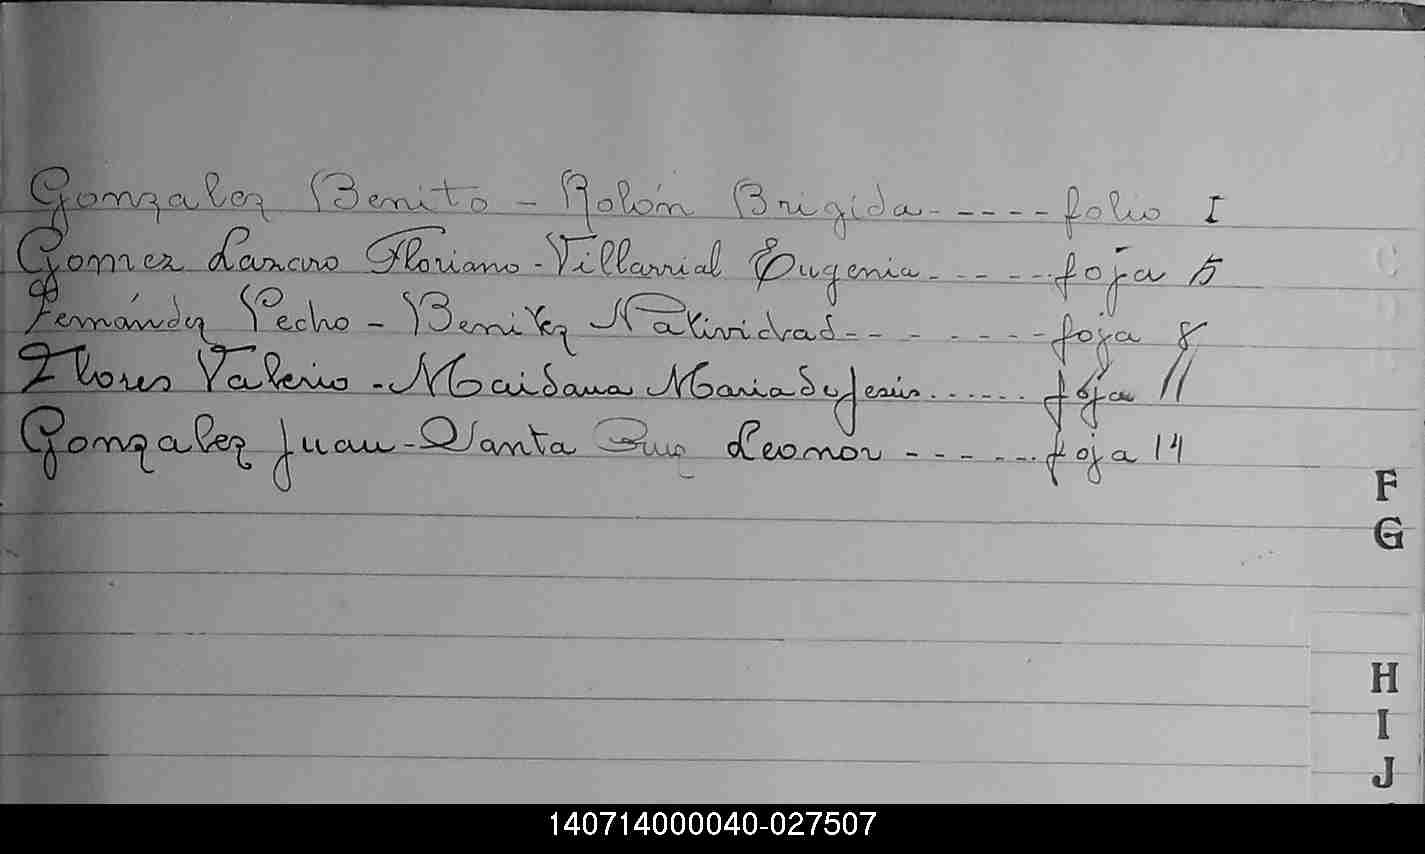 Gonzalez Benito - Rolón Brigida - - - - - folio I
Gomez Lazaro Floriano - Villarrial Eugenia - - - - - foja 5
Fernández Pecho - Benitez Natividad - - - - - - - foja 8
Flores Valerio - Maidana Maria de Jesús . . . . . . foja 11
Gonzalez Juan - Santa Cruz Leonor - - - - . . . foja 14
F
G
H
I
J
140714000040-027507